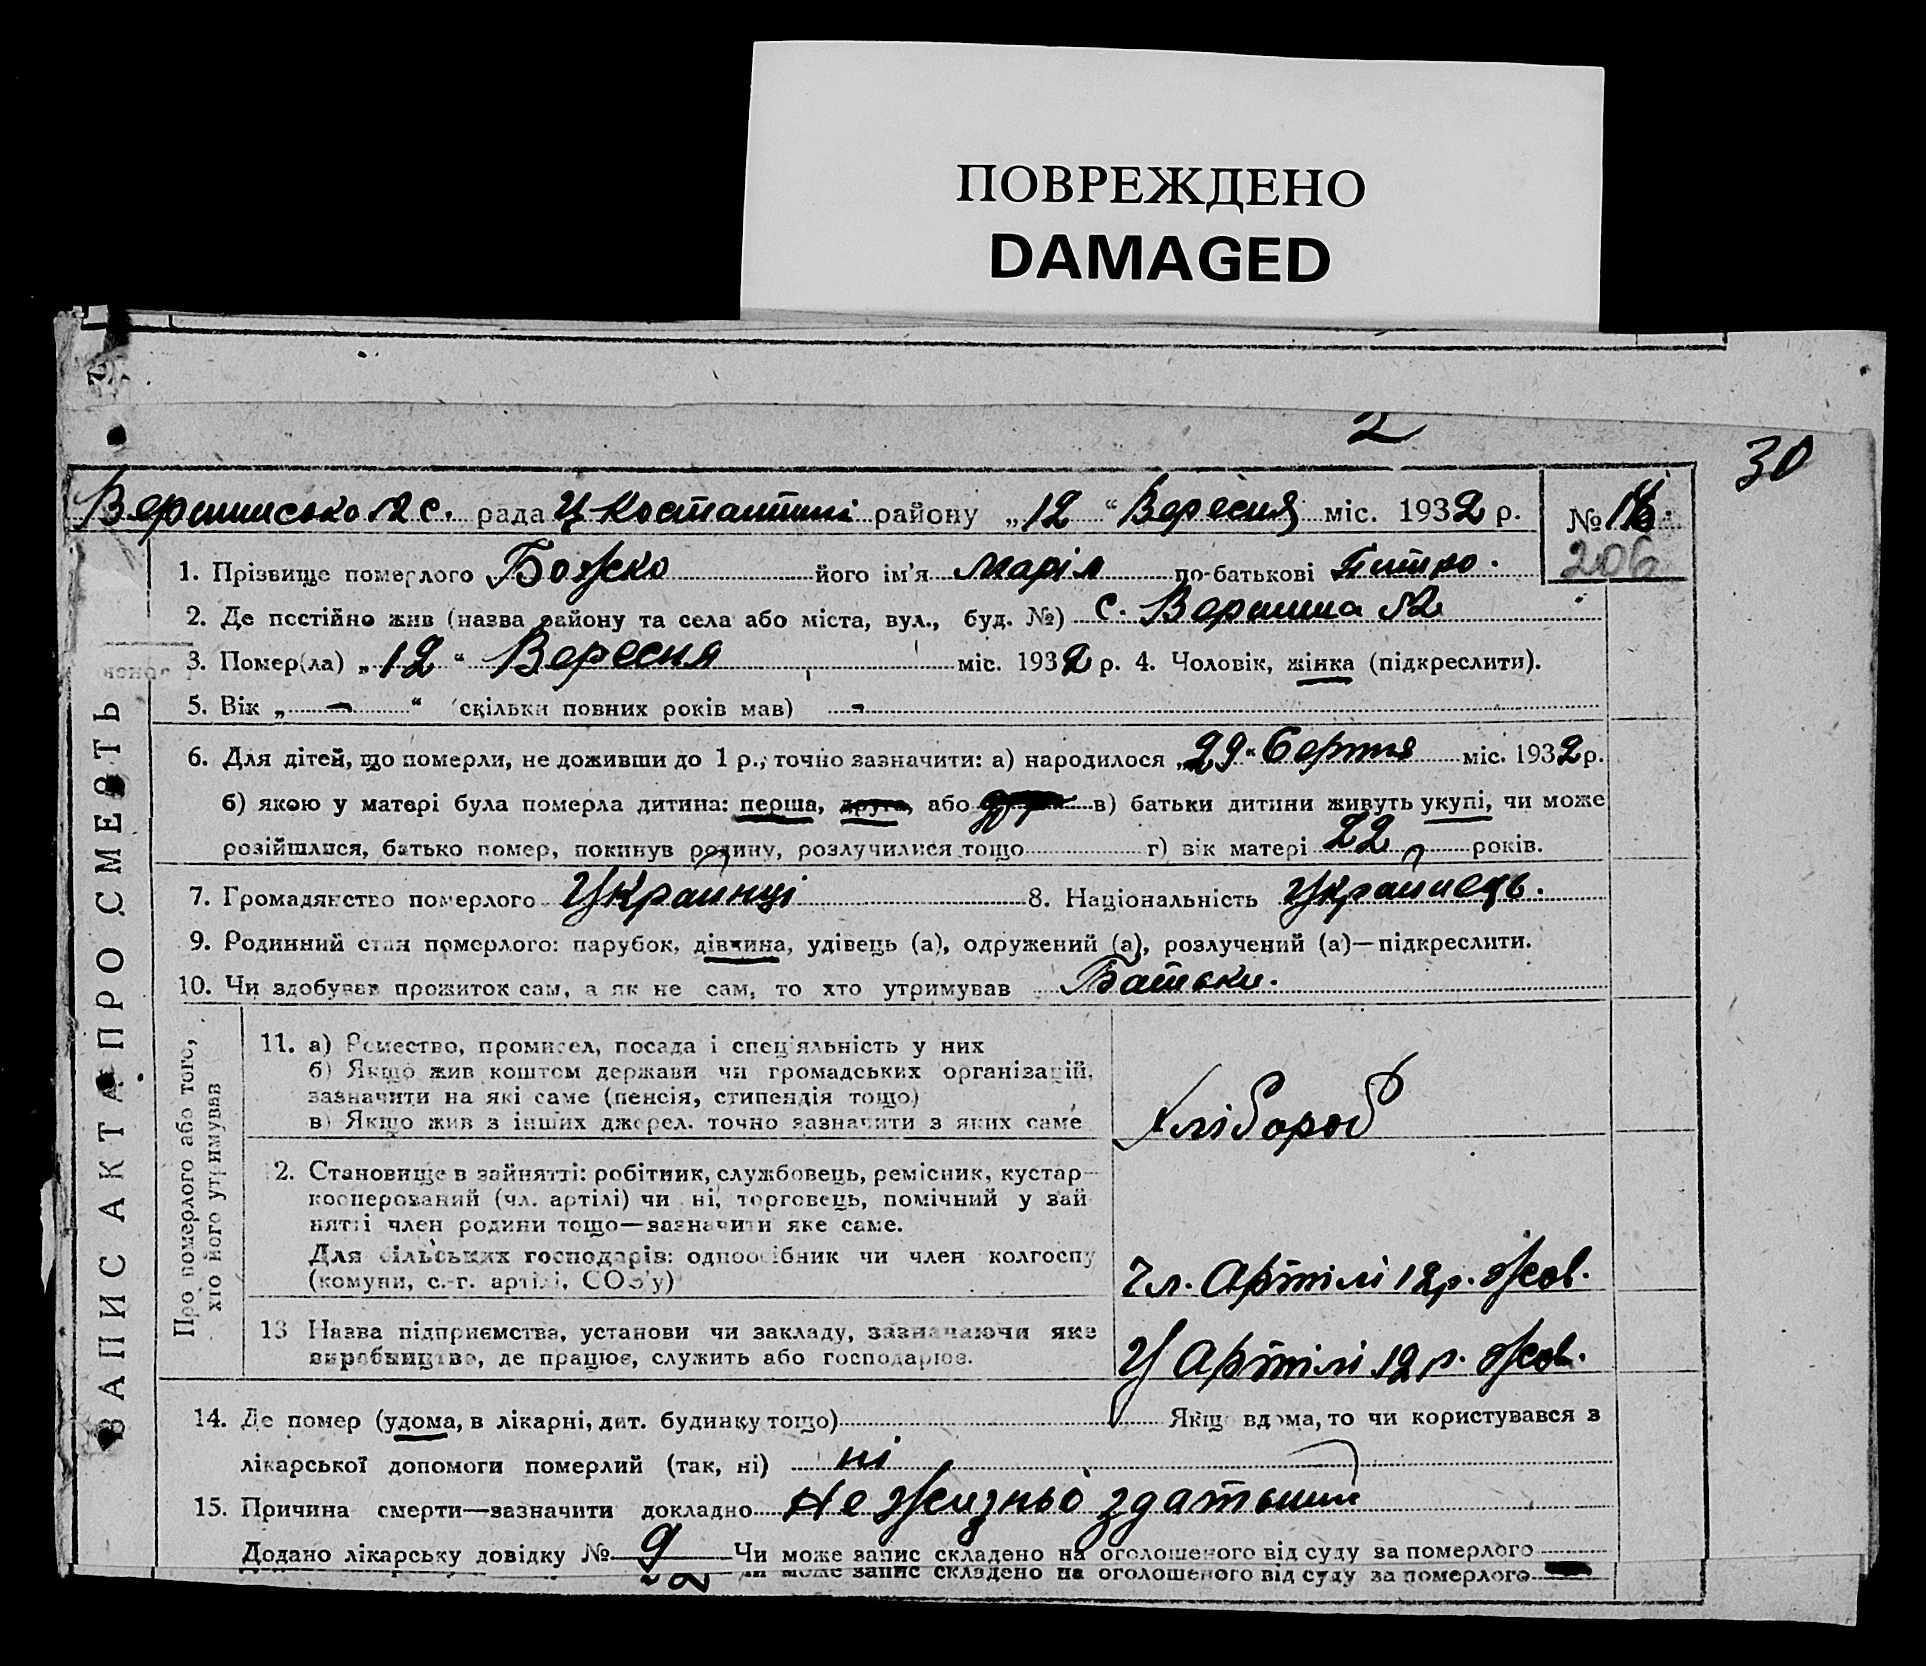 ПОВРЕЖДЕНО
DAMAGED
2
30
Вершинсько №2 с. рада Ц. Костантині району „12“ Вересня міс. 1932 р.
№
206
1. Прізвище померлого Божко його ім’я Марія по-батькові
2. Де постійно жив (назва району та села або міста, вул., буд. №) с. Вершина №2
3. Помер(ла) „12“ Вересня міс. 1932 р. 4. Чоловік, жінка (підкреслити).
5. Вік „ - “ (скільки повних років мав) -
6. Для дітей, що померли, не доживши до 1 р., точно зазначити: а) народилося „29“ Серпня міс. 1932 р.
б) якою у матері була померла дитина: перша, друга, або в) батьки дитини живуть укупі, чи може
розійшлися, батько помер, покинув родину, розлучилися тощо г) вік матері 22 років.
7. Громадянство померлого Украйнці 8. Національність Украйнець.
9. Родинний стан померлого: парубок, дівчина, удівець (а), одружений (а), розлучений (а)—підкреслити.
10. Чи здобував прожиток сам, а як не сам, то хто утримував Батьки.
ЗАПИС АКТА ПРО СМЕРТЬ
Про померлого або того,
хто його утримував
11. а) Ремество, промисел, посада і спец’яльність у них
б) Якщо жив коштом держави чи громадських організацій,
зазначити на які саме (пенсія, стипендія тощо)
в) Якщо жив з інших джерел. точно зазначити з яких саме
хлібороб
2. Становище в зайнятті: робітник, службовець, ремісник, кустар-
кооперований (чл. артілі) чи ні, торговець, помічний у зай
нятті член родини тощо—зазначити яке саме.
Для сільських господарів: одноосібник чи член колгоспу
(комуни, с.-г. артілі, СОЗ’у)
чл. Артілі 12 р. Жов.
13 Назва підприємства, установи чи закладу, зазначаючи яке
виробництво, де працює, служить або господарює.
У Артілі 12 р. Жов.
14. Де помер (удома, в лікарні, дит. будинку тощо) Якщо вдома, то чи користувався з
лікарської допомоги померлий (так, ні) ні
15. Причина смерти—зазначити докладно Не жизньо здатьний
Додано лікарську довідку № 9 Чи може запис складено на оголошеного від суду за померлого
чи може запис складено на оголошеного від суду за померлого